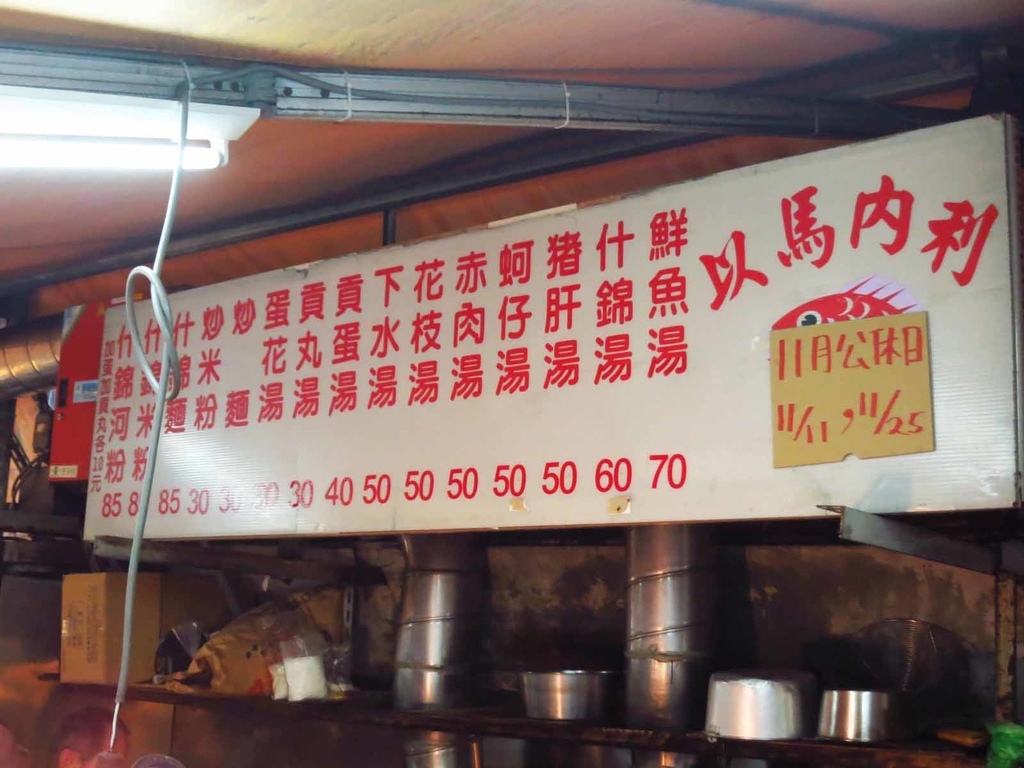 以馬內利
11月公休日
11/11,11/25
鮮魚湯 70
什錦湯 60
猪肝湯 50
蚵仔湯 50
赤肉湯 50
花枝湯 50
下水湯 50
貢蛋湯 40
貢丸湯 30
蛋花湯 30
炒麵 30
炒米粉 30
什錦麵 85
什錦米粉 8
什錦河粉 85
加蛋加貢丸各10元